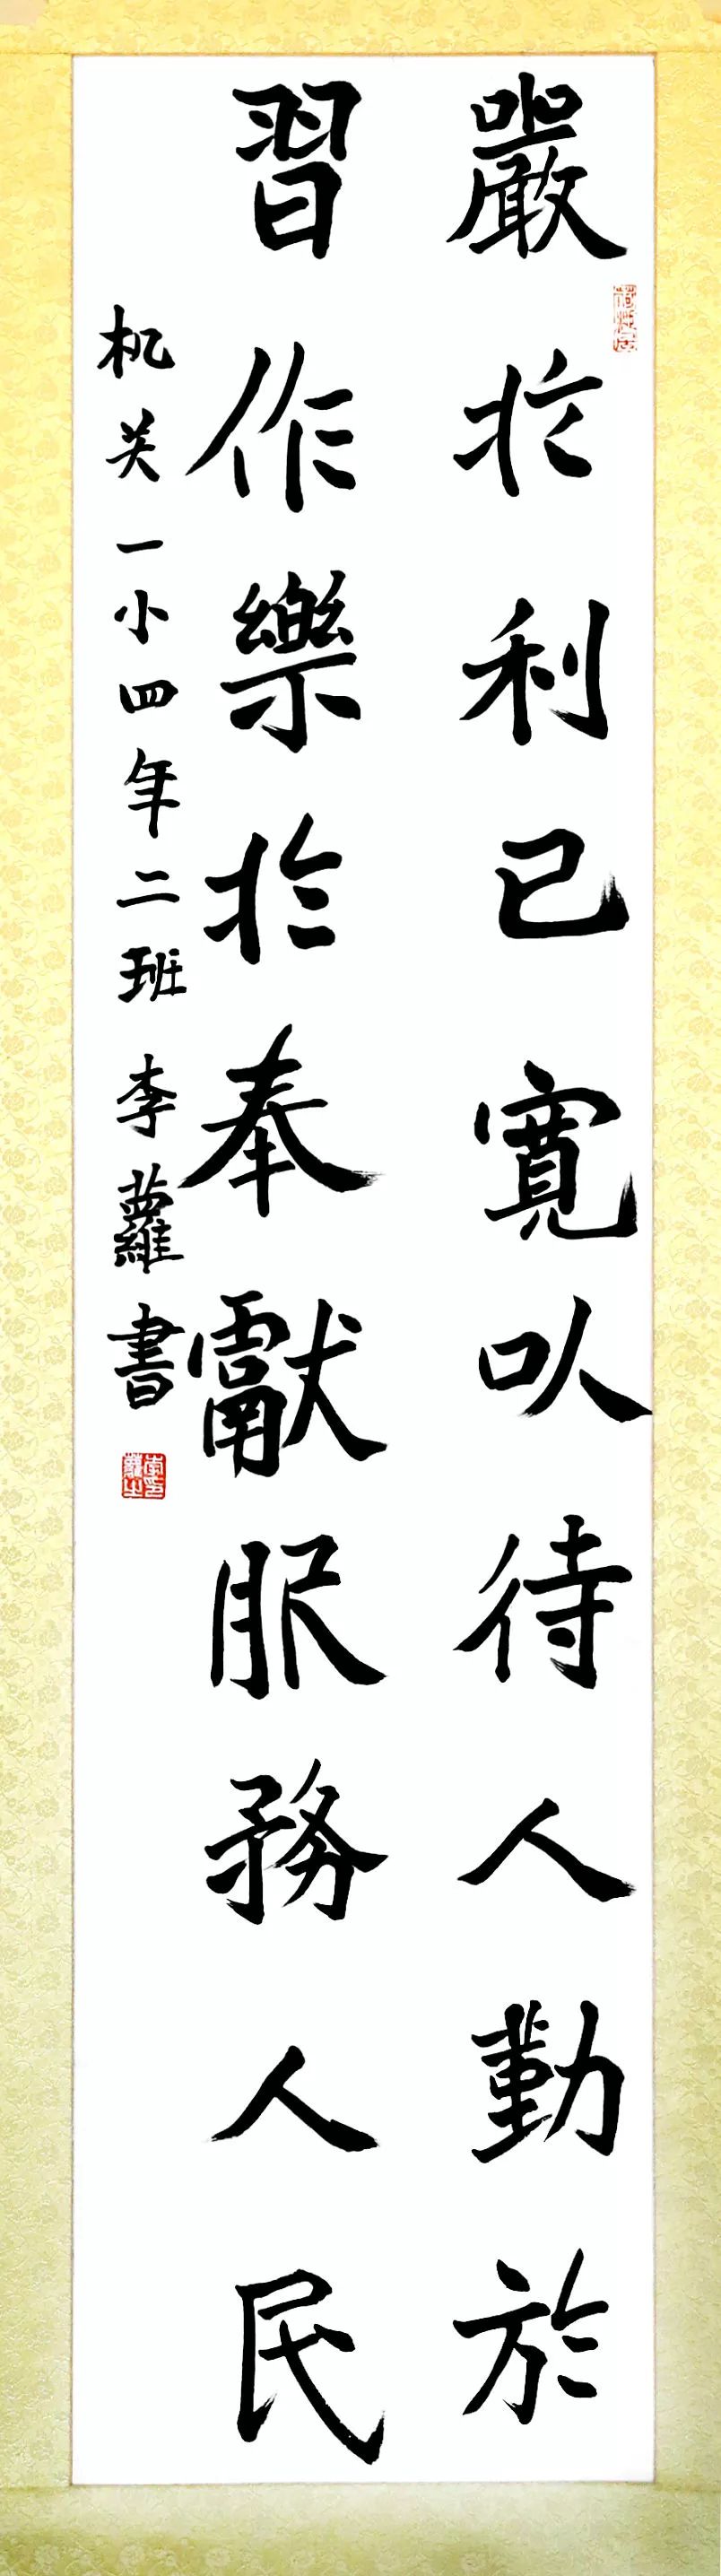 嚴於利己寬以待人勤於
習作樂於奉獻服務人民
机关一小四年二班李蘿書